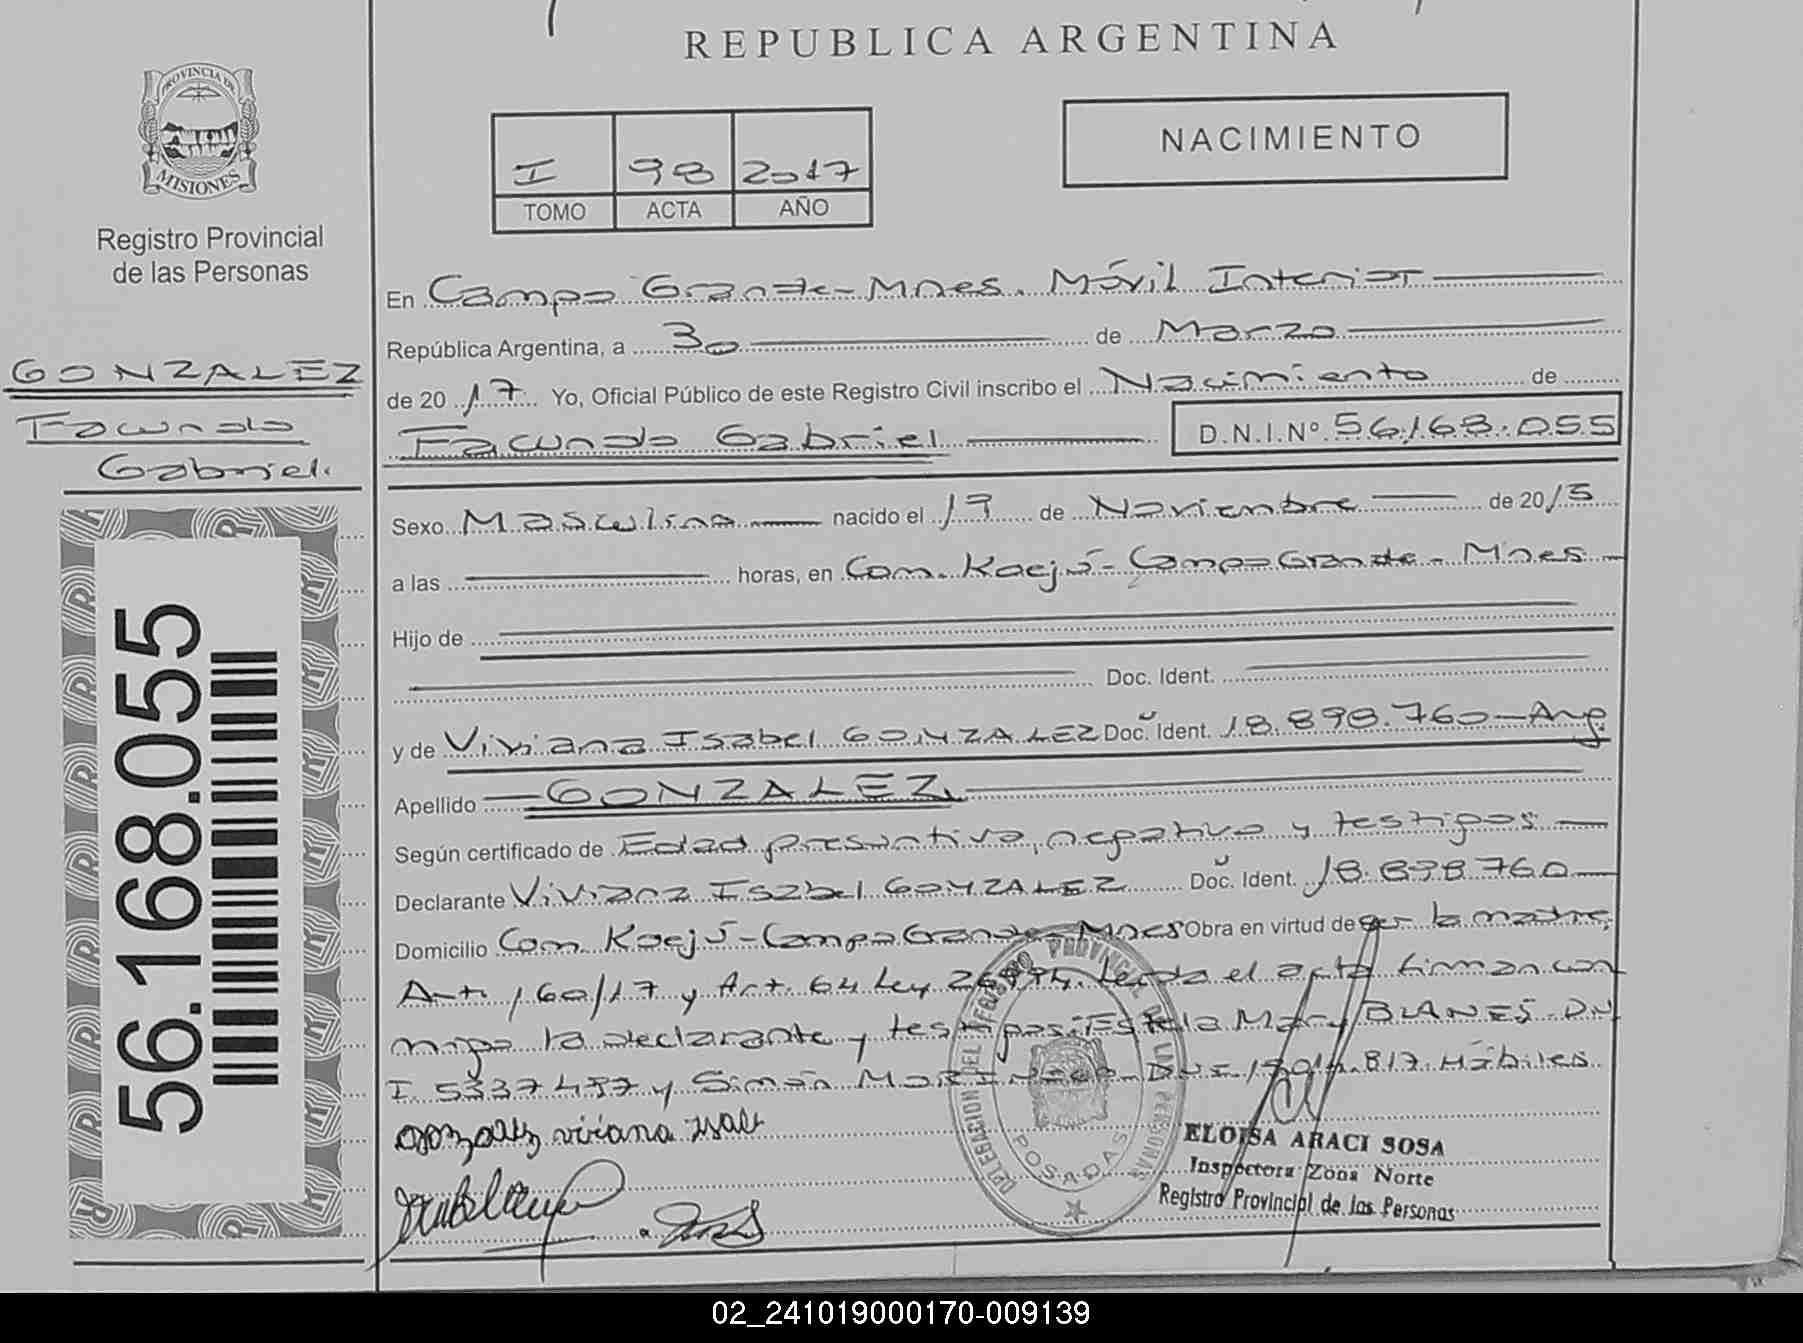 REPUBLICA ARGENTINA
PROVINCIA DE
MISIONES
Registro Provincial
de las Personas
GONZALEZ
Facundo
Gabriel.
56.168.055
I 98 2017
TOMO ACTA AÑO
NACIMIENTO
En Campo Grande-Mnes. Móvil Interior
República Argentina, a 30 de Marzo
de 2017 Yo, Oficial Público de este Registro Civil inscribo el Nacimiento de
Facundo Gabriel D.N.I.Nº 56.168.055
Sexo Masculino nacido el 19 de Noviembre de 20
a las horas, en Com. Kaejú-Campo Grande-Mnes.
Hijo de
Doc. Ident.
y de Viviana Isabel GONZALEZ Doc. Ident. 18.898.760-Arg
Apellido GONZALEZ
Según certificado de Edad presuntiva, negativo y testigos
Declarante Viviana Isabel GONZALEZ Doc. Ident. 18.898.760
Domicilio Com. Kaejú-Campo Grande-Mnes Obra en virtud de ser la madre,
Art. 160/17 y Art. 64 Ley Leída el acta firman con
migo la declarante y testigos: Estela Mary BLANES-DN
I. 5337487 y Simón DNI Hábiles
gonzalez viviana
DELEGACION DEL REGISTRO PROVINCIAL DE LAS PERSONAS
POSADAS
ELOISA ARACI SOSA
Inspectora Zona Norte
Registro Provincial de las Personas
02_241019000170-009139